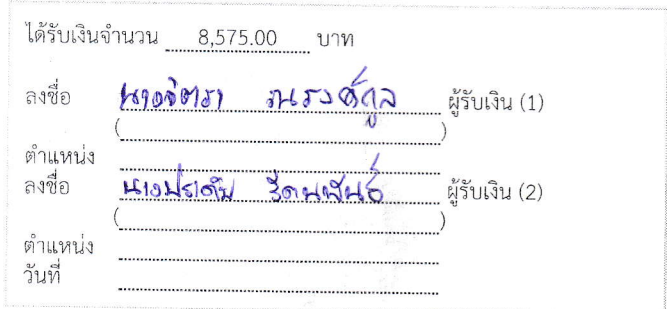 ได้รับเงินจำนวน 8,575.00 บาท
ลงชื่อ นางจิตรา ผู้รับเงิน (1)
( )
ตำแหน่ง
ลงชื่อ นางประดับ ผู้รับเงิน (2)
( )
ตำแหน่ง
วันที่